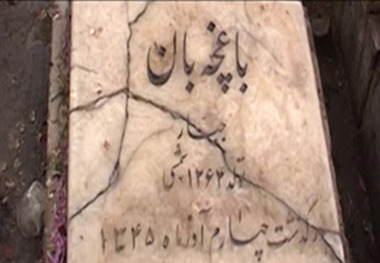 باغچه بان
جبار
تولد ۱۲۶۲ شمسی
درگذشت چهارم آذر ماه ۱۳۴۵